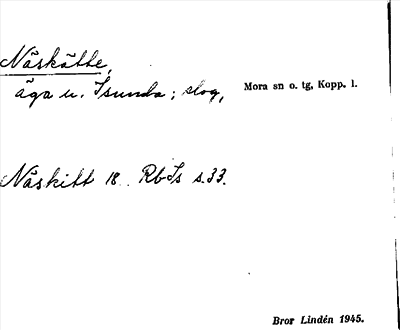 Näskätte,
äga u. Isunda; slog,
Mora sn o. tg, Kopp. l.
Näskitt 18.. RbIs s.33.
Bror Lindén 1945.